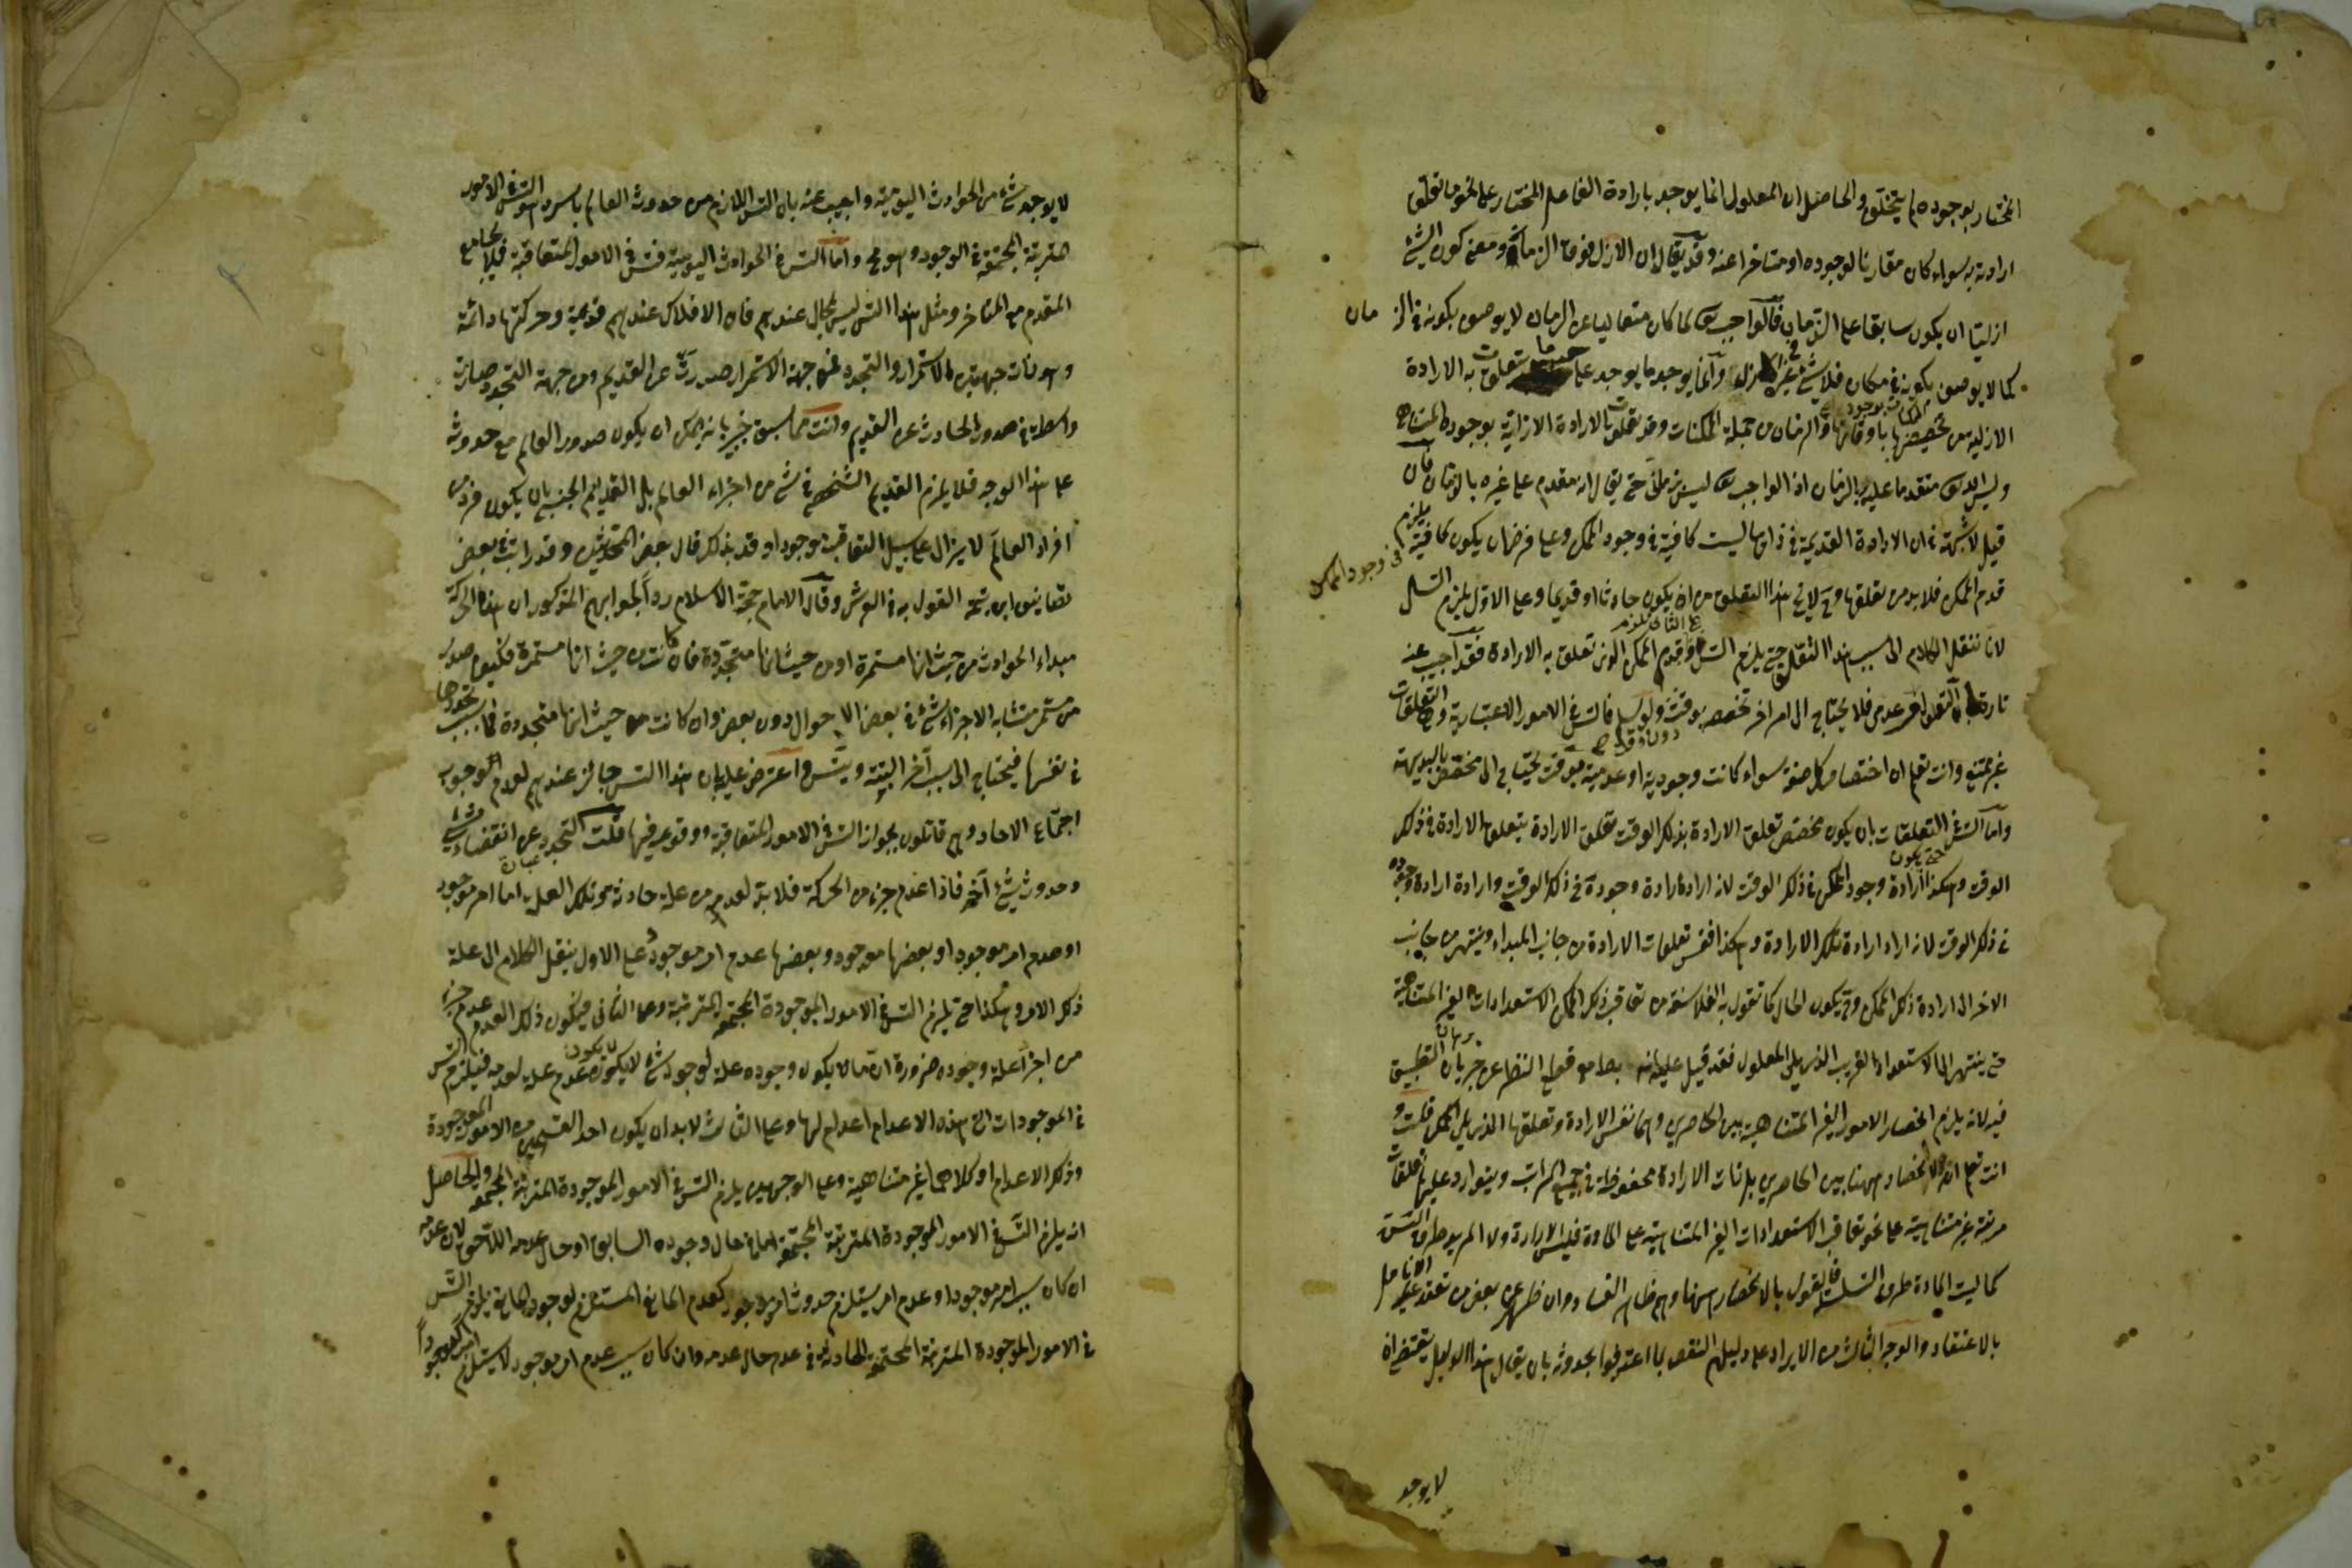 المختار بوجوده لم يتخلق والحاصل ان المعلول انما يوجد بارادة الفاعل المختار على نحو ما تعلق
ارادته به سواء كان مقارنا لوجوده او متاخرا عنه وقد يقال ان الازل فوق الزمان ومعنى كون الشئ
ازليا ان يكون سابقا على الزمان فالواجب تع لما كان متعاليا عن الزمان لا يوصف بكونه في الزمان
كما لا يوصف بكونه في مكان فلا شئ غيره في الازل وانما يوجد ما يوجد على حسب ما تعلقت به الارادة
الازلية من تخصيصها باوقاتها والزمان من جملة الممكنات وقد تعلقت الارادة الازلية بوجوده المتناهي
وليس الله تع متقدما عليه بالزمان اذ الواجب تع ليس بزماني حتى يقال انه مقدم على غيره بالزمان فان
قيل لا شبهة في ان الارادة القديمة في ذاتها ليست كافية في وجود الممكن وعلى فرض ان يكون كافية في وجود الممكن يلزم
قدم الممكن فلا بد من تعلقها وح لا يخ هذا التعلق من ان يكون حادثا او قديما وعلى الاول يلزم التسلسل
لانا ننقل الكلام الى سبب هذا التعلق حتى يلزم التس وعلى الثاني يلزم قدم الممكن الذي تعلق به الارادة فقد اجيب عنه
تارة بان التعلق امر عدمي فلا يحتاج الى امر اخر تخصصه بوقت دون وقت ولو سلم فالتس في الامور الاعتبارية وهي التعلقات
غير ممتنع وانت تعلم ان اختصاص كل صفة سواء كانت وجودية او عدمية بوقت يحتاج الى مخصص بالبديهة
واما التس في التعلقات بان يكون مخصص تعلق الارادة بذلك الوقت تعلق الارادة بتعلق الارادة في ذلك
الوقت وهكذا حتى يكون ارادة وجود الممكن في ذلك الوقت لانه اراد ارادة وجوده في ذلك الوقت وارادة ارادة وجوده
في ذلك الوقت لانه اراد ارادة تلك الارادة وهكذا فتعلقات الارادة من جانب المبداء وينتهي من جانب
الاخر الى ارادة ذلك الممكن وح يكون الحال كما تقول به الفلاسفة من تعاقب ذلك الممكن الاستعدادات الغير المتناهية
حتى ينتهي الى الاستعداد القريب الذي يلي المعلول فقد قيل عليه انه بط مع قطع النظر عن جريان برهان التطبيق
فيه لانه يلزم انحصار الامور الغير المتناهية بين الحاصرين وهما نفس الارادة وتعلقها الذي يلي الممكن قلت و
انت تعلم انه لا انحصار ههنا بين الحاصرين بل ذات الارادة محفوظة في جميع المراتب ويتوارد عليها تعلقات
مرتبة غير متناهية على نحو تعاقب الاستعدادات الغير المتناهية على المادة فليس الارادة ولا المريد طرف التس
كما ليست المادة طرف التسلسل فالقول بالانحصار ههنا وهم ظاهر الفساد وان ظهر عن بعض من تعقد عليه الانامل
بالاعتقاد والوجه الثالث من الايراد على دليلهم النقص بما اعترفوا بحدوثه بان يقال هذا الدليل يقتضي ان
لا يوجد
لا يوجد شئ من الحوادث اليومية واجيب عنه بان التس اللازم من حدوث العالم باسره هو التس في الامور
المترتبة المجتمعة في الوجود وهو مح واما التس في الحوادث اليومية فتس في الامور المتعاقبة فلا يجامع
المقدم مع المتاخر ومثل هذا التس ليس بمحال عندهم فان الافلاك عندهم قديمة وحركتها دائمة
وهو ذات جهتين الاستمرار والتجدد فمن جهة الاستمرار صدرت عن القديم ومن جهة التجدد صارت
واسطة في صدور الحادث عن القديم وانت مما سبق خبير بانه يمكن ان يكون صدور العالم مع حدوثه
على هذا الوجه فلا يلزم القديم الشخصي في شئ من اجزاء العالم بل القديم الجنسي بان يكون فرد من
افراد العالم لا يزال على سبيل التعاقب موجودا وقد بذلك قال بعض المحدثين وقد رايت في بعض
تصانيف ابن تيمية القول به في العرش وقال الامام حجة الاسلام رداً لجوابهم المذكور ان هذه الحركة
مبداء الحوادث من حيث انها مستمرة او من حيث انها متجددة فان كانت من حيث انها مستمرة فكيف صدر
من مستمر متشابه الاجزاء شئ في بعض الاحوال دون بعض وان كانت من حيث انها متجددة فما سبب تجددها
في نفسها فيحتاج الى سبب آخر البتة ويتس واعترض عليه بان هذا التس جائز عندهم لعدم وجوب
اجتماع الاحاد وهم قائلون بجواز التس في الامور المتعاقبة ووقوعه فيها قلت التجدد عبارة عن انقضاء شئ
وحدوث شئ آخر فاذا انعدم جزء من الحركة فلا بد لعدمه من علة حادثة وتلك العلة اما امر موجود
او عدم امر موجود او بعضها موجود وبعضها عدم امر موجود وعلى الاول ينقل الكلام الى علة
ذلك الامر وهكذا حتى يلزم التس في الامور الموجودة المجتمعة المترتبة وعلى الثاني فيكون ذلك العدم عدم جزء
من اجزاء علة وجوده ضرورة ان ما لا يكون وجوده علة لوجود شئ لا يكون عدمه علة لعدمه فيلزم التس
في الموجودات التي هذه الاعدام اعدام لها وعلى الثالث لا بد ان يكون احد القسمين من الامور الموجودة
وذلك الاعدام او كلاهما غير متناهية وعلى الوجهين يلزم التس في الامور الموجودة المترتبة المجتمعة والحاصل
انه يلزم التس في الامور الموجودة المترتبة المجتمعة اما في حال وجوده السابق او حال عدمه اللاحق لان عدمه
ان كان بسبب امر موجود او عدم امر يستلزم حدوث امر موجود كعدم المانع المستلزم لوجود المانع يلزم التس
في الامور الموجودة المترتبة المجتمعة الحادثة في حال عدمه وان كان بسبب عدم امر موجود لا يستلزم امراً موجوداً